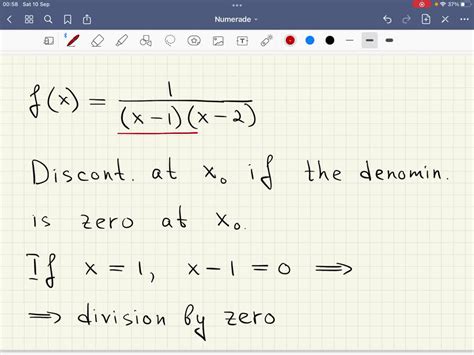 00:58 Sat 10 Sep 37%
Numerade
f(x) = 1 / (x-1)(x-2)
Discont. at x₀ if the denomin.
is zero at x₀.
If x = 1, x-1 = 0 ⟹
⟹ division by zero